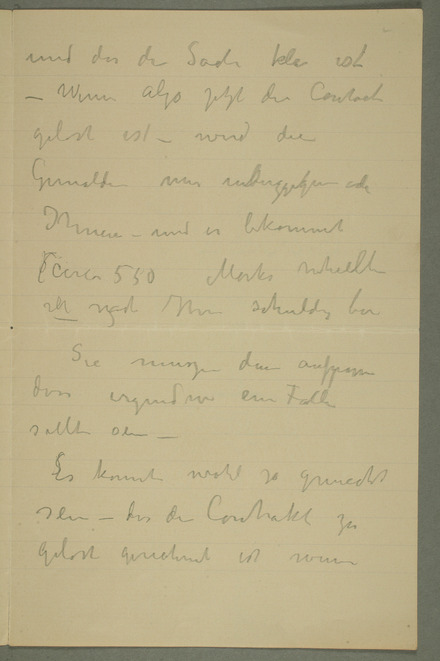 und das die Sache klar ist
– Wenn also jetzt der Contract
gelöst ist – wird die
Gemälde mir
Ihnen – und er bekommt
circa 550 Marks
ich noch Ihm schuldig bin
Sie müssen dann aufpassen
dass irgendwo eine Falle
sollte sein –
Es könnte wohl so gemacht
sein – das der Contrakt
gelöst ist wenn